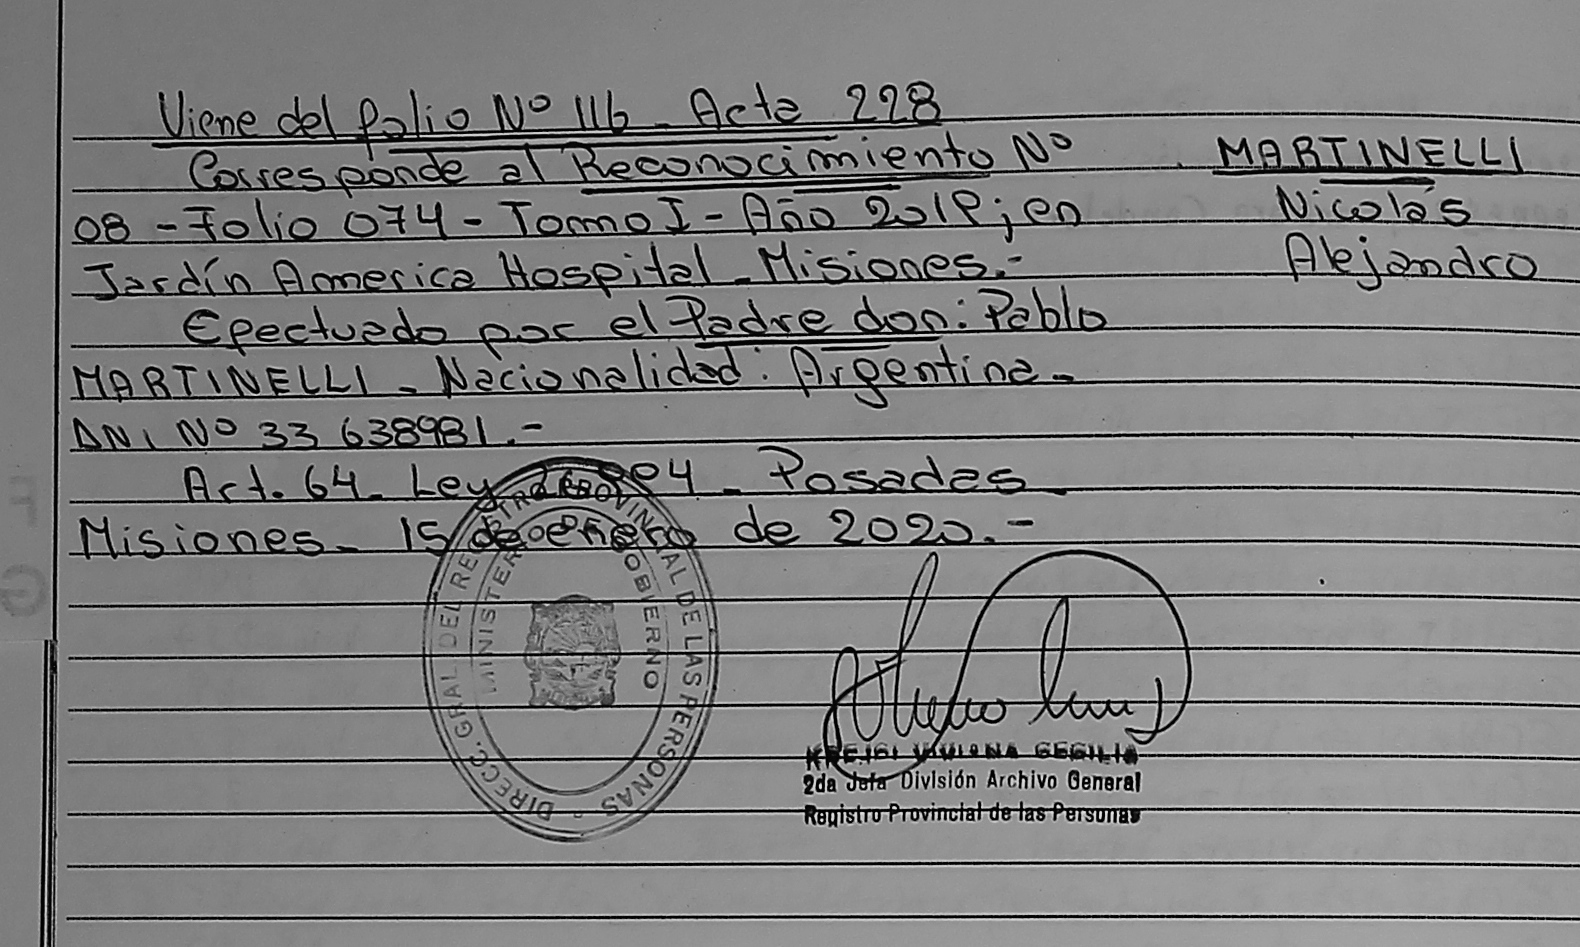 Viene del folio Nº 116 - Acta 228
Corresponde al Reconocimiento Nº
08 - Folio 074 - Tomo I - Año 2019; en
Jardín America Hospital - Misiones.-
Efectuado por el Padre don: Pablo
MARTINELLI - Nacionalidad: Argentina -
DNI Nº 33 638981.-
Art. 64 - Ley - Posadas -
Misiones - 15 de enero de 2020.-
MARTINELLI
Nicolás
Alejandro
DIRECC. GRAL. DEL REGISTRO PROVINCIAL DE LAS PERSONAS
MINISTERIO DE GOBIERNO
KREJCI VIVIANA CECILIA
2da Jefa División Archivo General
Registro Provincial de las Personas